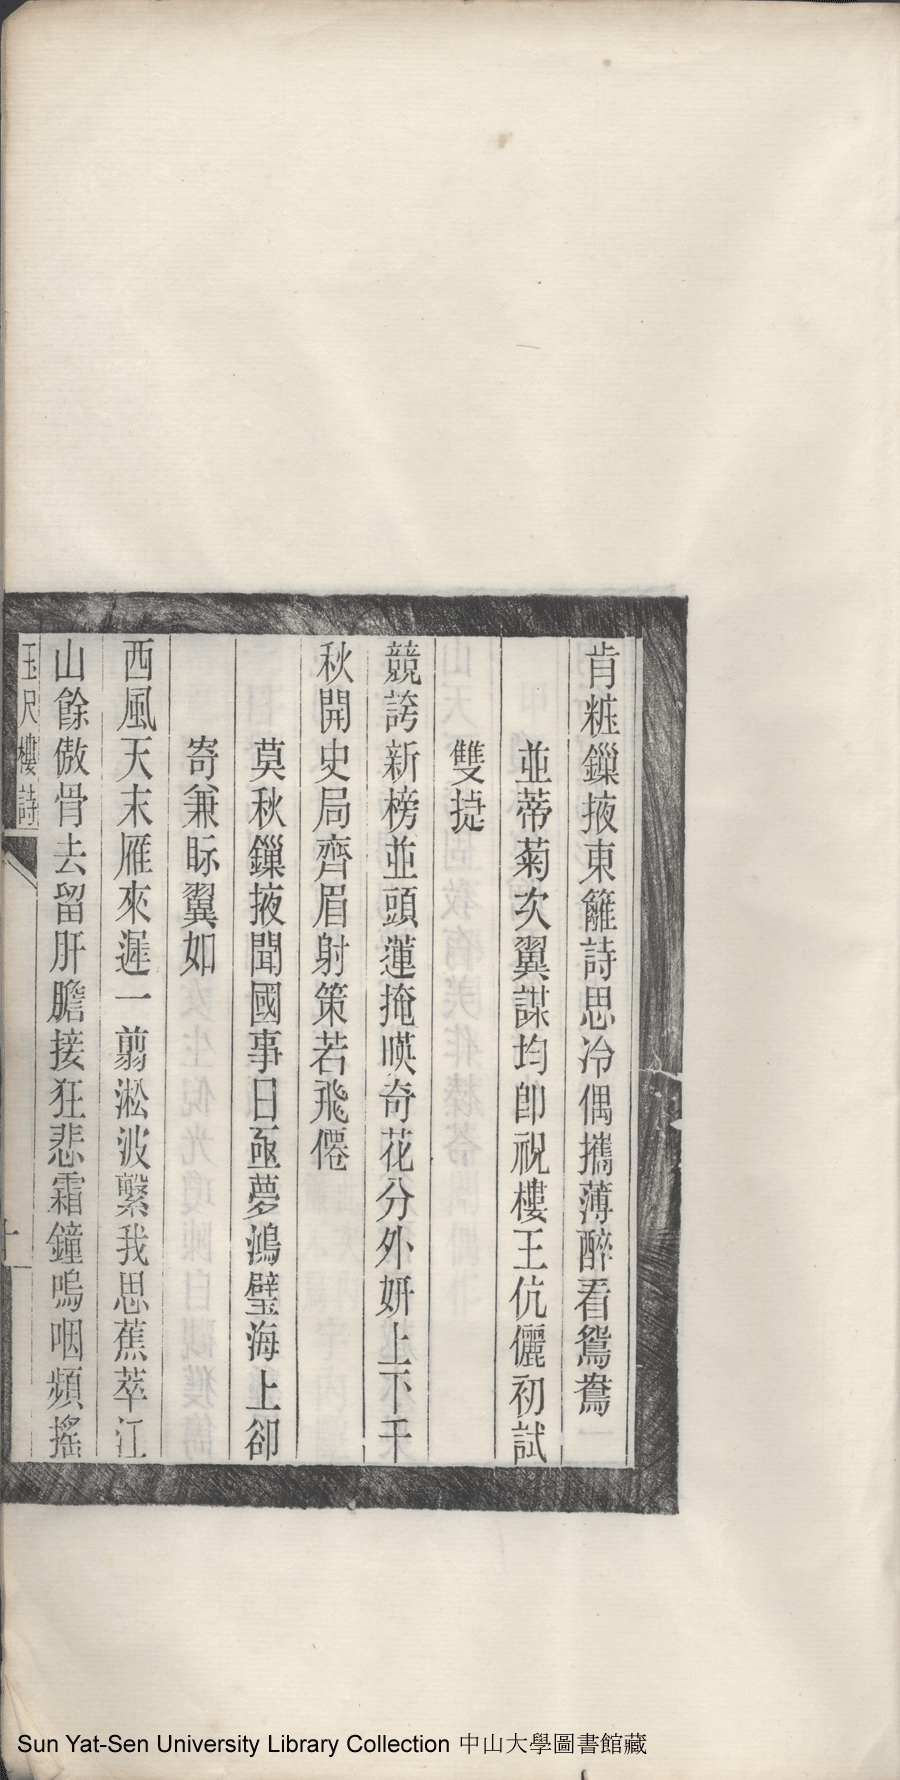 肯粧鏁掖東籬詩思冷偶攜薄醉看鴛鴦
並蒂菊次翼謀均卽祝樓王伉儷初試
雙㨗
競誇新榜並頭蓮掩暎奇花分外妍上下千
秋開史局齊眉射策若飛僊
莫秋鏁掖聞國事日亟夢鴻壁海上卻
寄兼眎翼如
西風天末雁來遲一翦淞波繫我思蕉萃江
山餘傲骨去留肝膽接狂悲霜鐘嗚咽頻搖
玉尺樓詩
十一
Sun Yat-Sen University Library Collection 中山大學圖書館藏